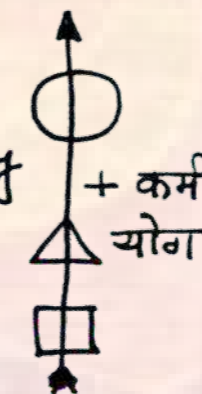 + कर्म
योग